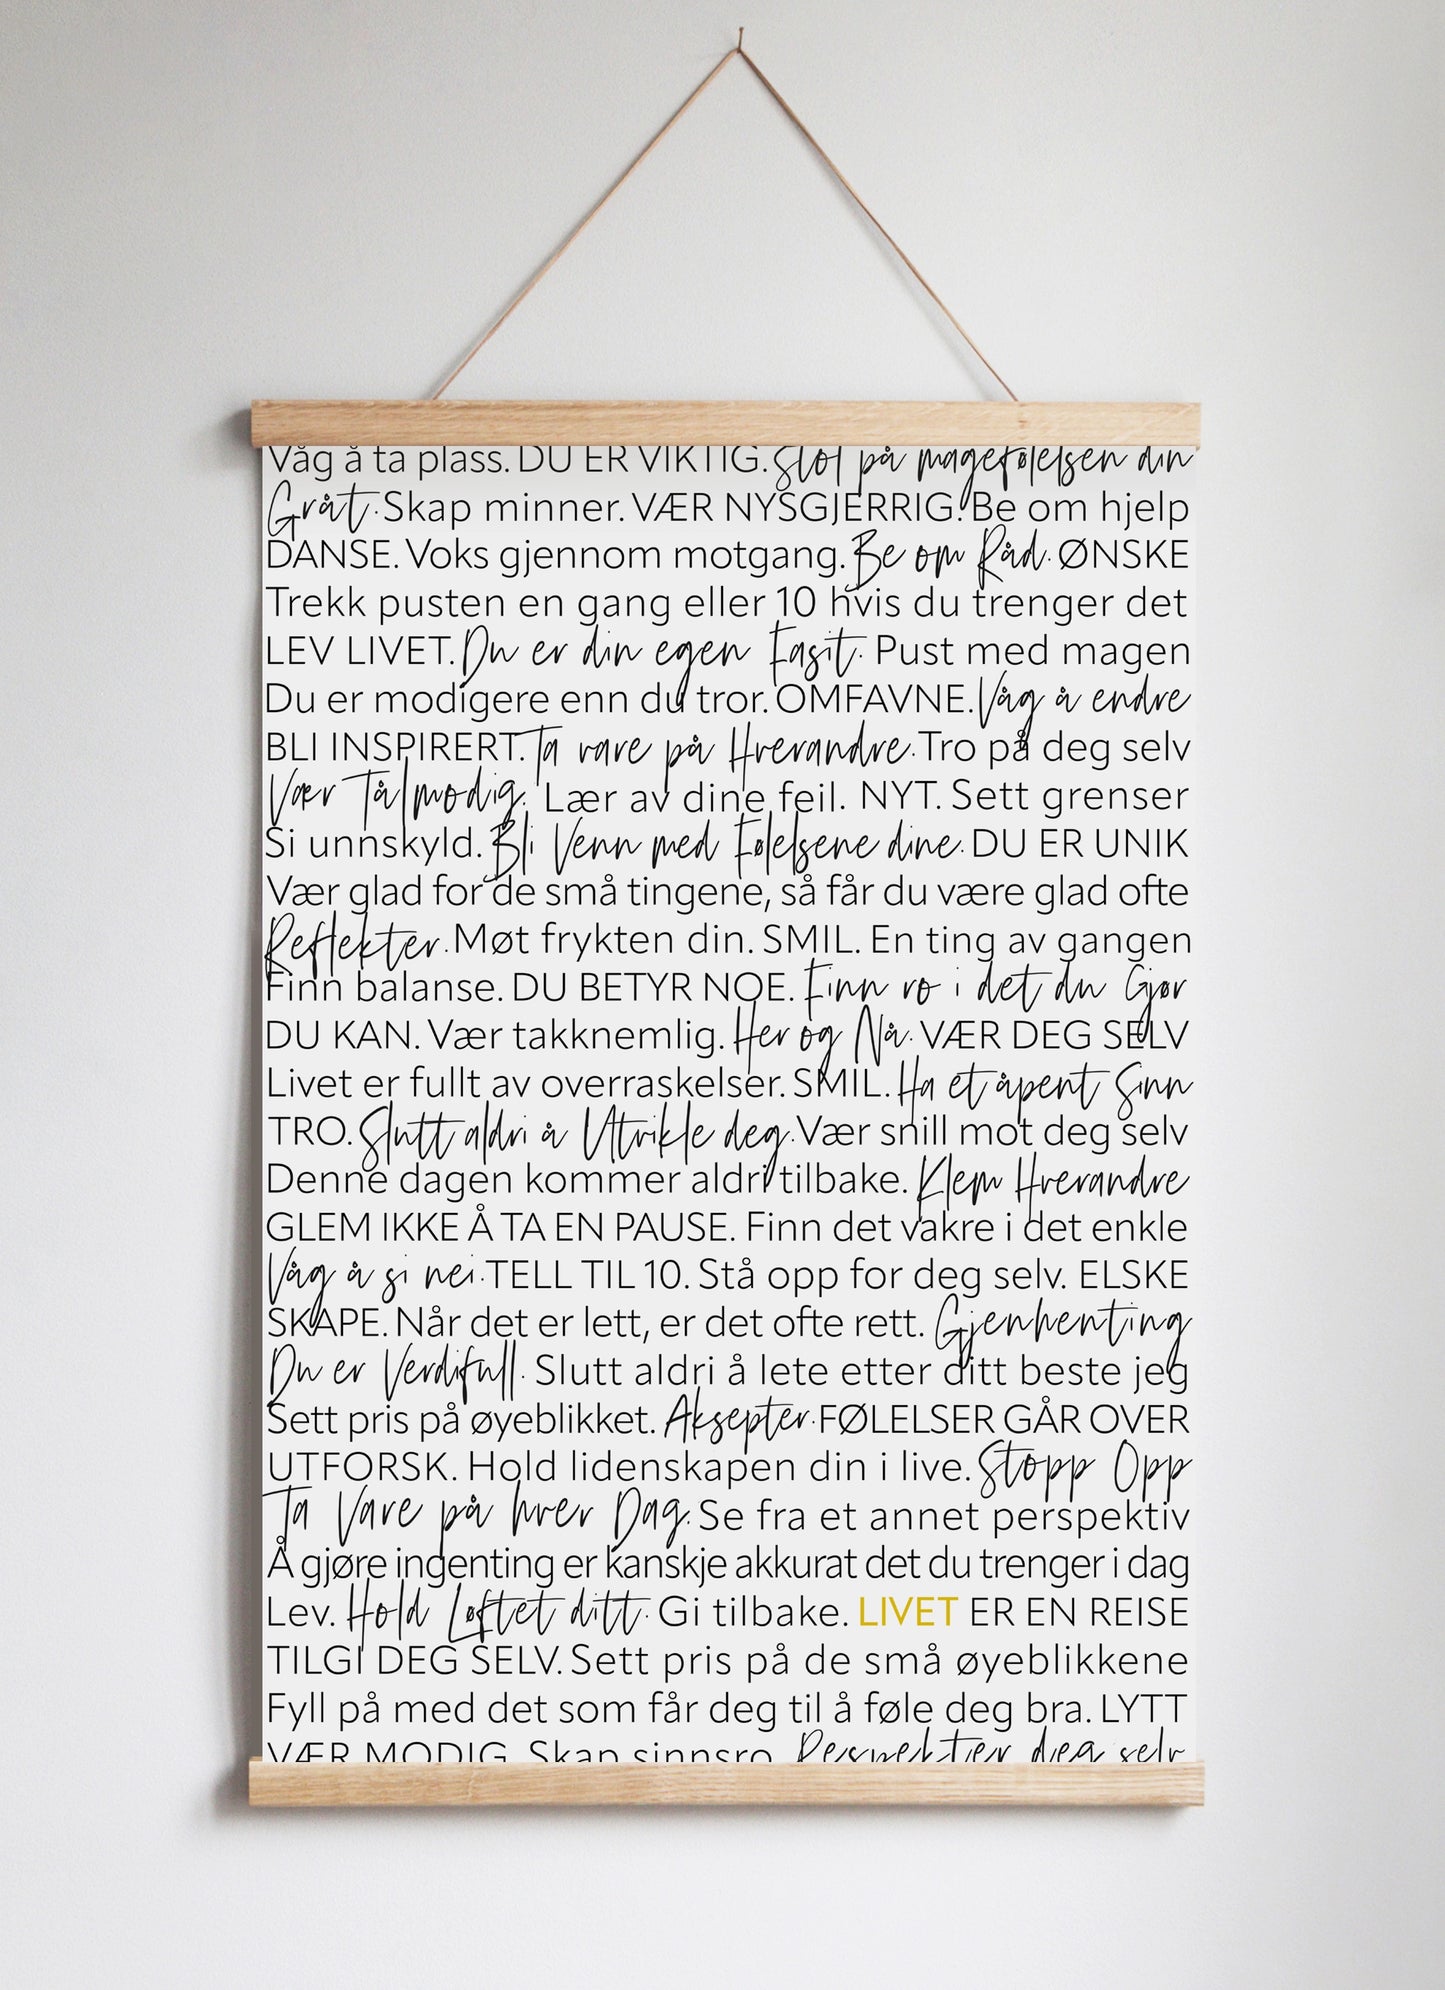 Våg å ta plass. DU ER VIKTIG. Stol på magefølelsen din
Gråt. Skap minner. VÆR NYSGJERRIG. Be om hjelp
DANSE. Voks gjennom motgang. Be om Råd. ØNSKE
Trekk pusten en gang eller 10 hvis du trenger det
LEV LIVET. Du er din egen Fasit. Pust med magen
Du er modigere enn du tror. OMFAVNE. Våg å endre
BLI INSPIRERT. Ta vare på Hverandre. Tro på deg selv
Vær Tålmodig. Lær av dine feil. NYT. Sett grenser
Si unnskyld. Bli Venn med Følelsene dine. DU ER UNIK
Vær glad for de små tingene, så får du være glad ofte
Reflekter. Møt frykten din. SMIL. En ting av gangen
Finn balanse. DU BETYR NOE. Finn ro i det du Gjør
DU KAN. Vær takknemlig. Her og Nå. VÆR DEG SELV
Livet er fullt av overraskelser. SMIL. Ha et åpent Sinn
TRO. Slutt aldri å Utvikle deg. Vær snill mot deg selv
Denne dagen kommer aldri tilbake. Klem Hverandre
GLEM IKKE Å TA EN PAUSE. Finn det vakre i det enkle
Våg å si nei. TELL TIL 10. Stå opp for deg selv. ELSKE
SKAPE. Når det er lett, er det ofte rett. Gjenhenting
Du er Verdifull. Slutt aldri å lete etter ditt beste jeg
Sett pris på øyeblikket. Aksepter. FØLELSER GÅR OVER
UTFORSK. Hold lidenskapen din i live. Stopp Opp
Ta Vare på hver Dag. Se fra et annet perspektiv
Å gjøre ingenting er kanskje akkurat det du trenger i dag
Lev. Hold Løftet ditt. Gi tilbake. LIVET ER EN REISE
TILGI DEG SELV. Sett pris på de små øyeblikkene
Fyll på med det som får deg til å føle deg bra. LYTT
VÆR MODIG. Skap sinnsro. Respekter deg selv.